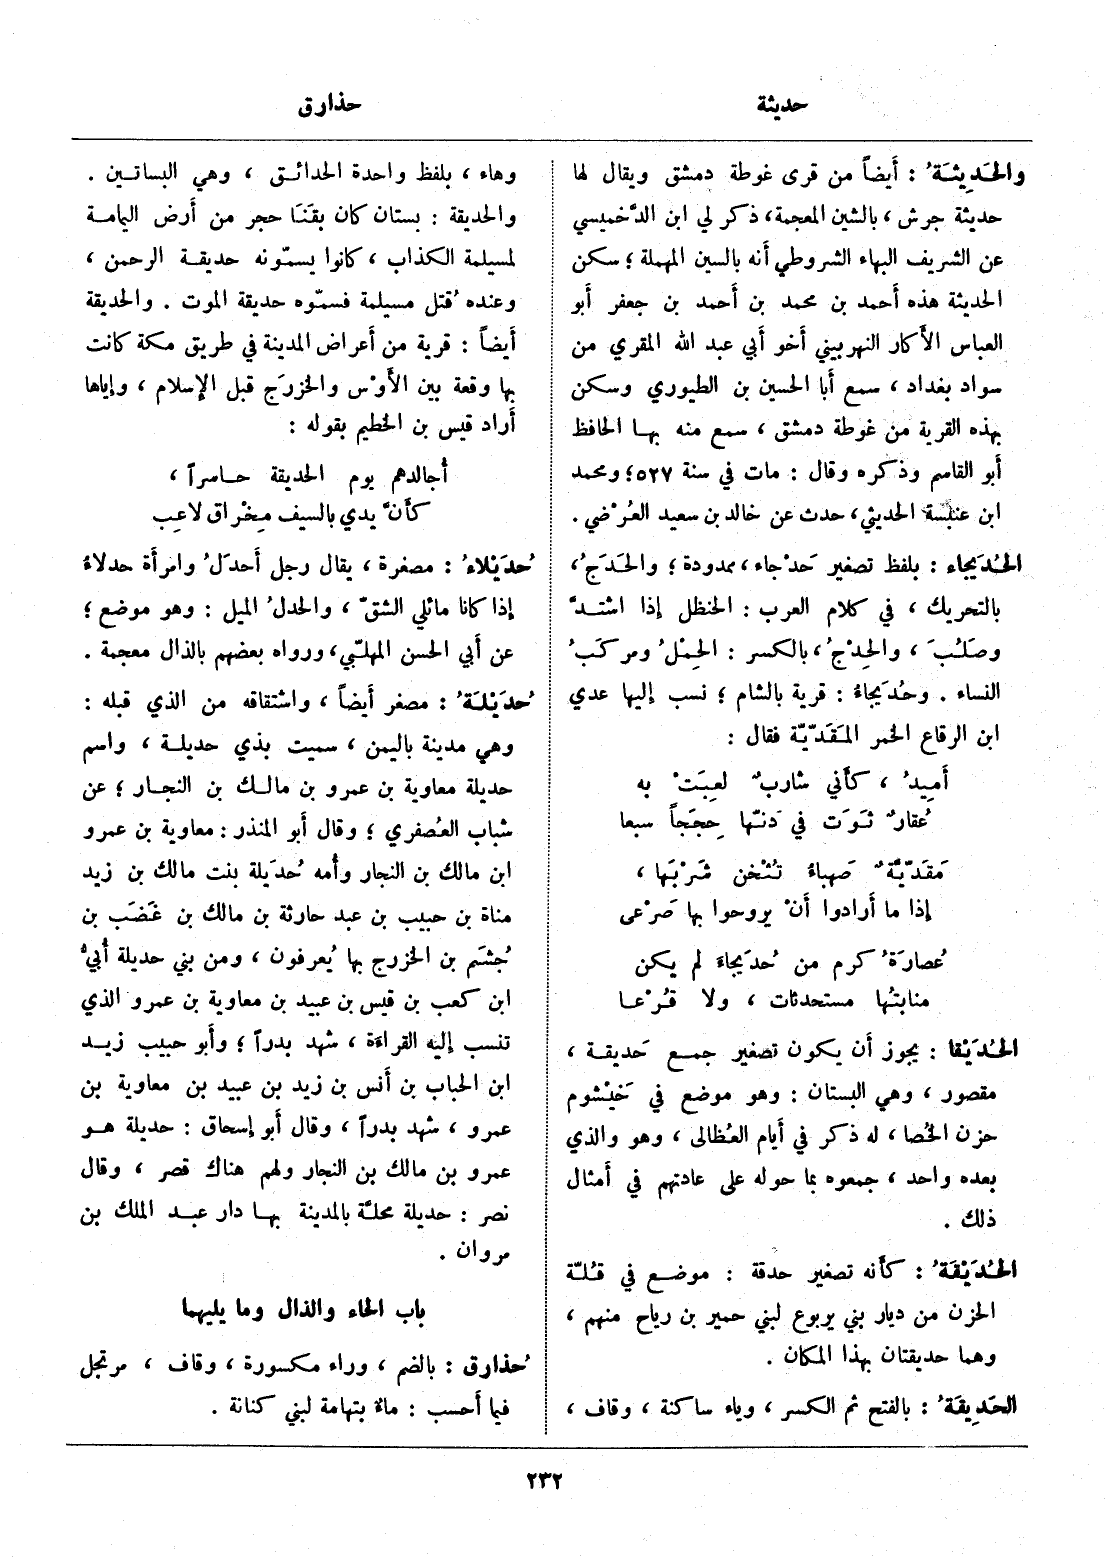 حديثة
حذارق
والحَديثَةُ : أيضاً من قرى غوطة دمشق ويقال لها
حديثة جرش ، بالشين المعجمة ، ذكر لي ابن الدَّخميسي
عن الشريف البهاء الشروطي أنه بالسين المهملة ؛ سكن
الحديثة هذه أحمد بن محمد بن أحمد بن جعفر أبو
العباس الأكار النهربيني أخو أبي عبد الله المقري من
سواد بغداد ، سمع أبا الحسين بن الطيوري وسكن
بهذه القرية من غوطة دمشق ، سمع منه بها الحافظ
أبو القاسم وذكره وقال : مات في سنة ٥٢٧ ؛ ومحمد
ابن عنبسة الحديثي ، حدث عن خالد بن سعيد العُرْضي .
الحُدَيجاء : بلفظ تصغير حَدْجاء ، ممدودة ؛ والحَدَجُ ،
بالتحريك ، في كلام العرب : الحنظل إذا اشتدَّ
وصَلُبَ ، والحِدْجُ ، بالكسر : الحِمْلُ ومركَبُ
النساء . وحُدَيجاءُ : قرية بالشام ؛ نسب إليها عدي
ابن الرقاع الخمر المَقَدّيّة فقال :
أَمِيدُ ، كأني شاربٌ لعِبَتْ به
عُقارٌ ثَوَت في دَنّها حِجَجاً سبعا
مَقَدّيَّةٌ صَهباءُ تُثْخن شَرْبَها ،
إذا ما أرادوا أنْ يروحوا بها صَرْعى
عُصارَةُ كرم من حُدَيجاءَ لم يكن
منابتُها مستحدثات ، ولا قُرْعا
الحُدَيْقا : يجوز أن يكون تصغير جمع حَديقة ،
مقصور ، وهي البستان : وهو موضع في خَيْشوم
حزن الخُصا ، له ذكر في أيام العُظالى ، وهو والذي
بعده واحد ، جمعوه بما حوله على عادتهم في أمثال
ذلك .
الحُدَيْقَةُ : كأنه تصغير حدقة : موضع في قُلّة
الحزن من ديار بني يربوع لبني حمير بن رياح منهم ،
وهما حديقتان بهذا المكان .
الحَديقَةُ : بالفتح ثم الكسر ، وياء ساكنة ، وقاف ،
وهاء ، بلفظ واحدة الحدائق ، وهي البساتين .
والحديقة : بستان كان بقَنَا حجر من أرض اليمامة
لمسيلمة الكذاب ، كانوا يسمّونه حديقة الرحمن ،
وعنده قُتل مسيلمة فسمّوه حديقة الموت . والحديقة
أيضاً : قرية من أعراض المدينة في طريق مكة كانت
بها وقعة بين الأوْس والخزرَج قبل الإسلام ، وإياها
أراد قيس بن الخطيم بقوله :
أُجالدهم يوم الحديقة حاسراً ،
كأنَّ يدي بالسيف مِخْراق لاعِب
حُدَيْلاءُ : مصغرة ، يقال رجل أحدَلُ وامرأة حدلاءُ
إذا كانا مائلي الشقّ ، والحدلُ الميل : وهو موضع ؛
عن أبي الحسن المهلّبي ، ورواه بعضهم بالذال معجمة .
حُدَيْلَةُ : مصغر أيضاً ، واشتقاقه من الذي قبله :
وهي مدينة باليمن ، سميت بذي حديلة ، واسم
حديلة معاوية بن عمرو بن مالك بن النجار ؛ عن
شباب العُصفري ؛ وقال أبو المنذر : معاوية بن عمرو
ابن مالك بن النجار وأمه حُدَيلة بنت مالك بن زيد
مناة بن حبيب بن عبد حارثة بن مالك بن غَضَب بن
جُشَم بن الخزرج بها يُعرفون ، ومن بني حديلة أُبيُّ
ابن كعب بن قيس بن عبيد بن معاوية بن عمرو الذي
تنسب إليه القراءة ، شهد بدراً ؛ وأبو حبيب زيد
ابن الحباب بن أنس بن زيد بن عبيد بن معاوية بن
عمرو ، شهد بدراً ، وقال أبو إسحاق : حديلة هو
عمرو بن مالك بن النجار ولهم هناك قصر ، وقال
نصر : حديلة محلّة بالمدينة بها دار عبد الملك بن
مروان .
باب الحاء والذال وما يليهما
حُذارق : بالضم ، وراء مكسورة ، وقاف ، مرتجل
فيما أحسب : ماءٌ بتهامة لبني كنانة .
٢٣٢